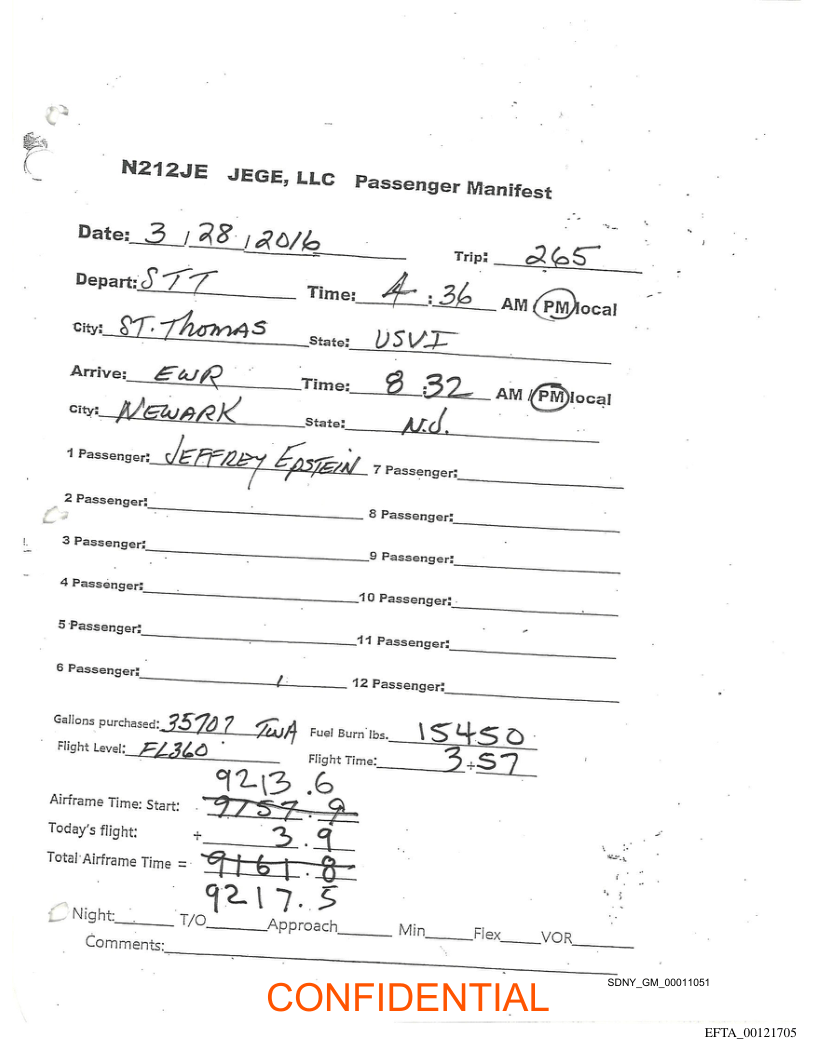 N212JE JEGE, LLC Passenger Manifest
Date: 3 / 28 / 2016
Trip: 265
Depart: STT Time: 4:36 AM / PM local
City: ST. THOMAS State: USVI
Arrive: EWR Time: 8:32 AM / PM local
City: NEWARK State: N.J.
1 Passenger: JEFFREY EPSTEIN 7 Passenger:
2 Passenger: 8 Passenger:
3 Passenger: 9 Passenger:
4 Passenger: 10 Passenger:
5 Passenger: 11 Passenger:
6 Passenger: 12 Passenger:
Gallons purchased: Fuel Burn lbs. 15450
Flight Level: FL360 Flight Time: 3+57
9213.6
Airframe Time: Start: 9157.9
Today's flight: + 3.9
Total Airframe Time = 9161.8
9217.5
Night: T/O Approach Min Flex VOR
Comments:
SDNY_GM_00011051
CONFIDENTIAL
EFTA_00121705